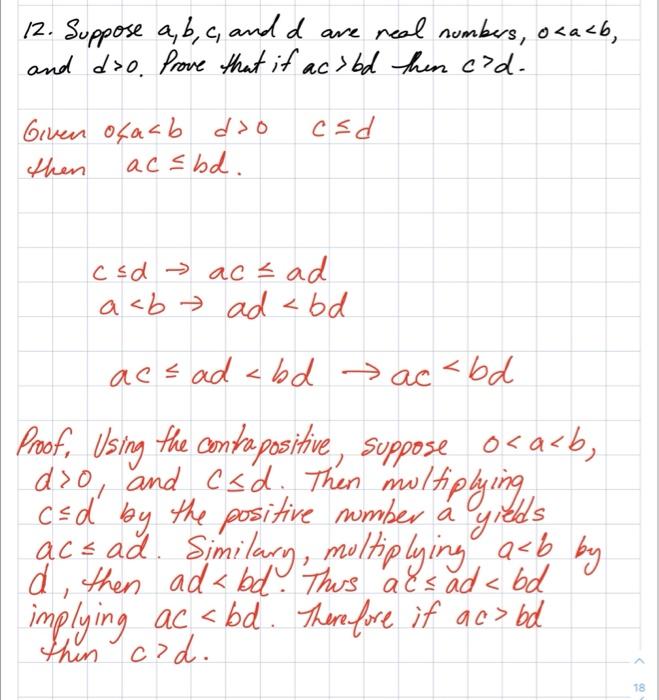 12. Suppose a, b, c, and d are real numbers, 0<a<b,
and d>0. Prove that if ac>bd then c>d.
Given 0<a<b d>0 c≤d
then ac≤bd.
c≤d → ac≤ad
a<b → ad<bd
ac≤ad<bd → ac<bd
Proof. Using the contrapositive, suppose 0<a<b,
d>0, and c≤d. Then multiplying
c≤d by the positive number a yields
ac≤ad. Similary, multiplying a<b by
d, then ad<bd. Thus ac≤ad<bd
implying ac<bd. Therefore if ac>bd
then c>d.
18